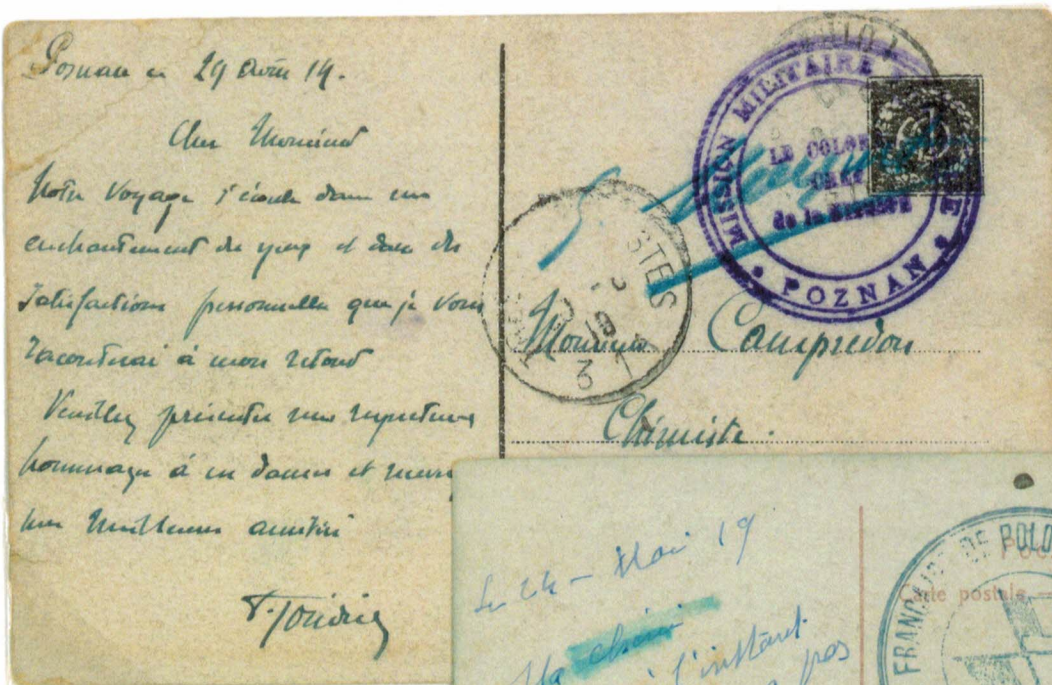 Poznan le 29 Août 19.
Cher Monsieur
Notre voyage s'écoule dans un
enchantement des yeux et dans des
satisfactions personnelles que je vous
raconterai à mon retour
Veuillez présenter mes respectueux
hommages à ces dames et
mes meilleures amitiés
MISSION MILITAIRE
LE COLONEL
CHEF
de la Mission
POZNAN
POSTES
19
3
Monsieur Campredon
Chimiste.
Le 24 - Mai 19
Ma chérie
à l'instant
pas
FRANÇAISE DE POLO
Carte postale